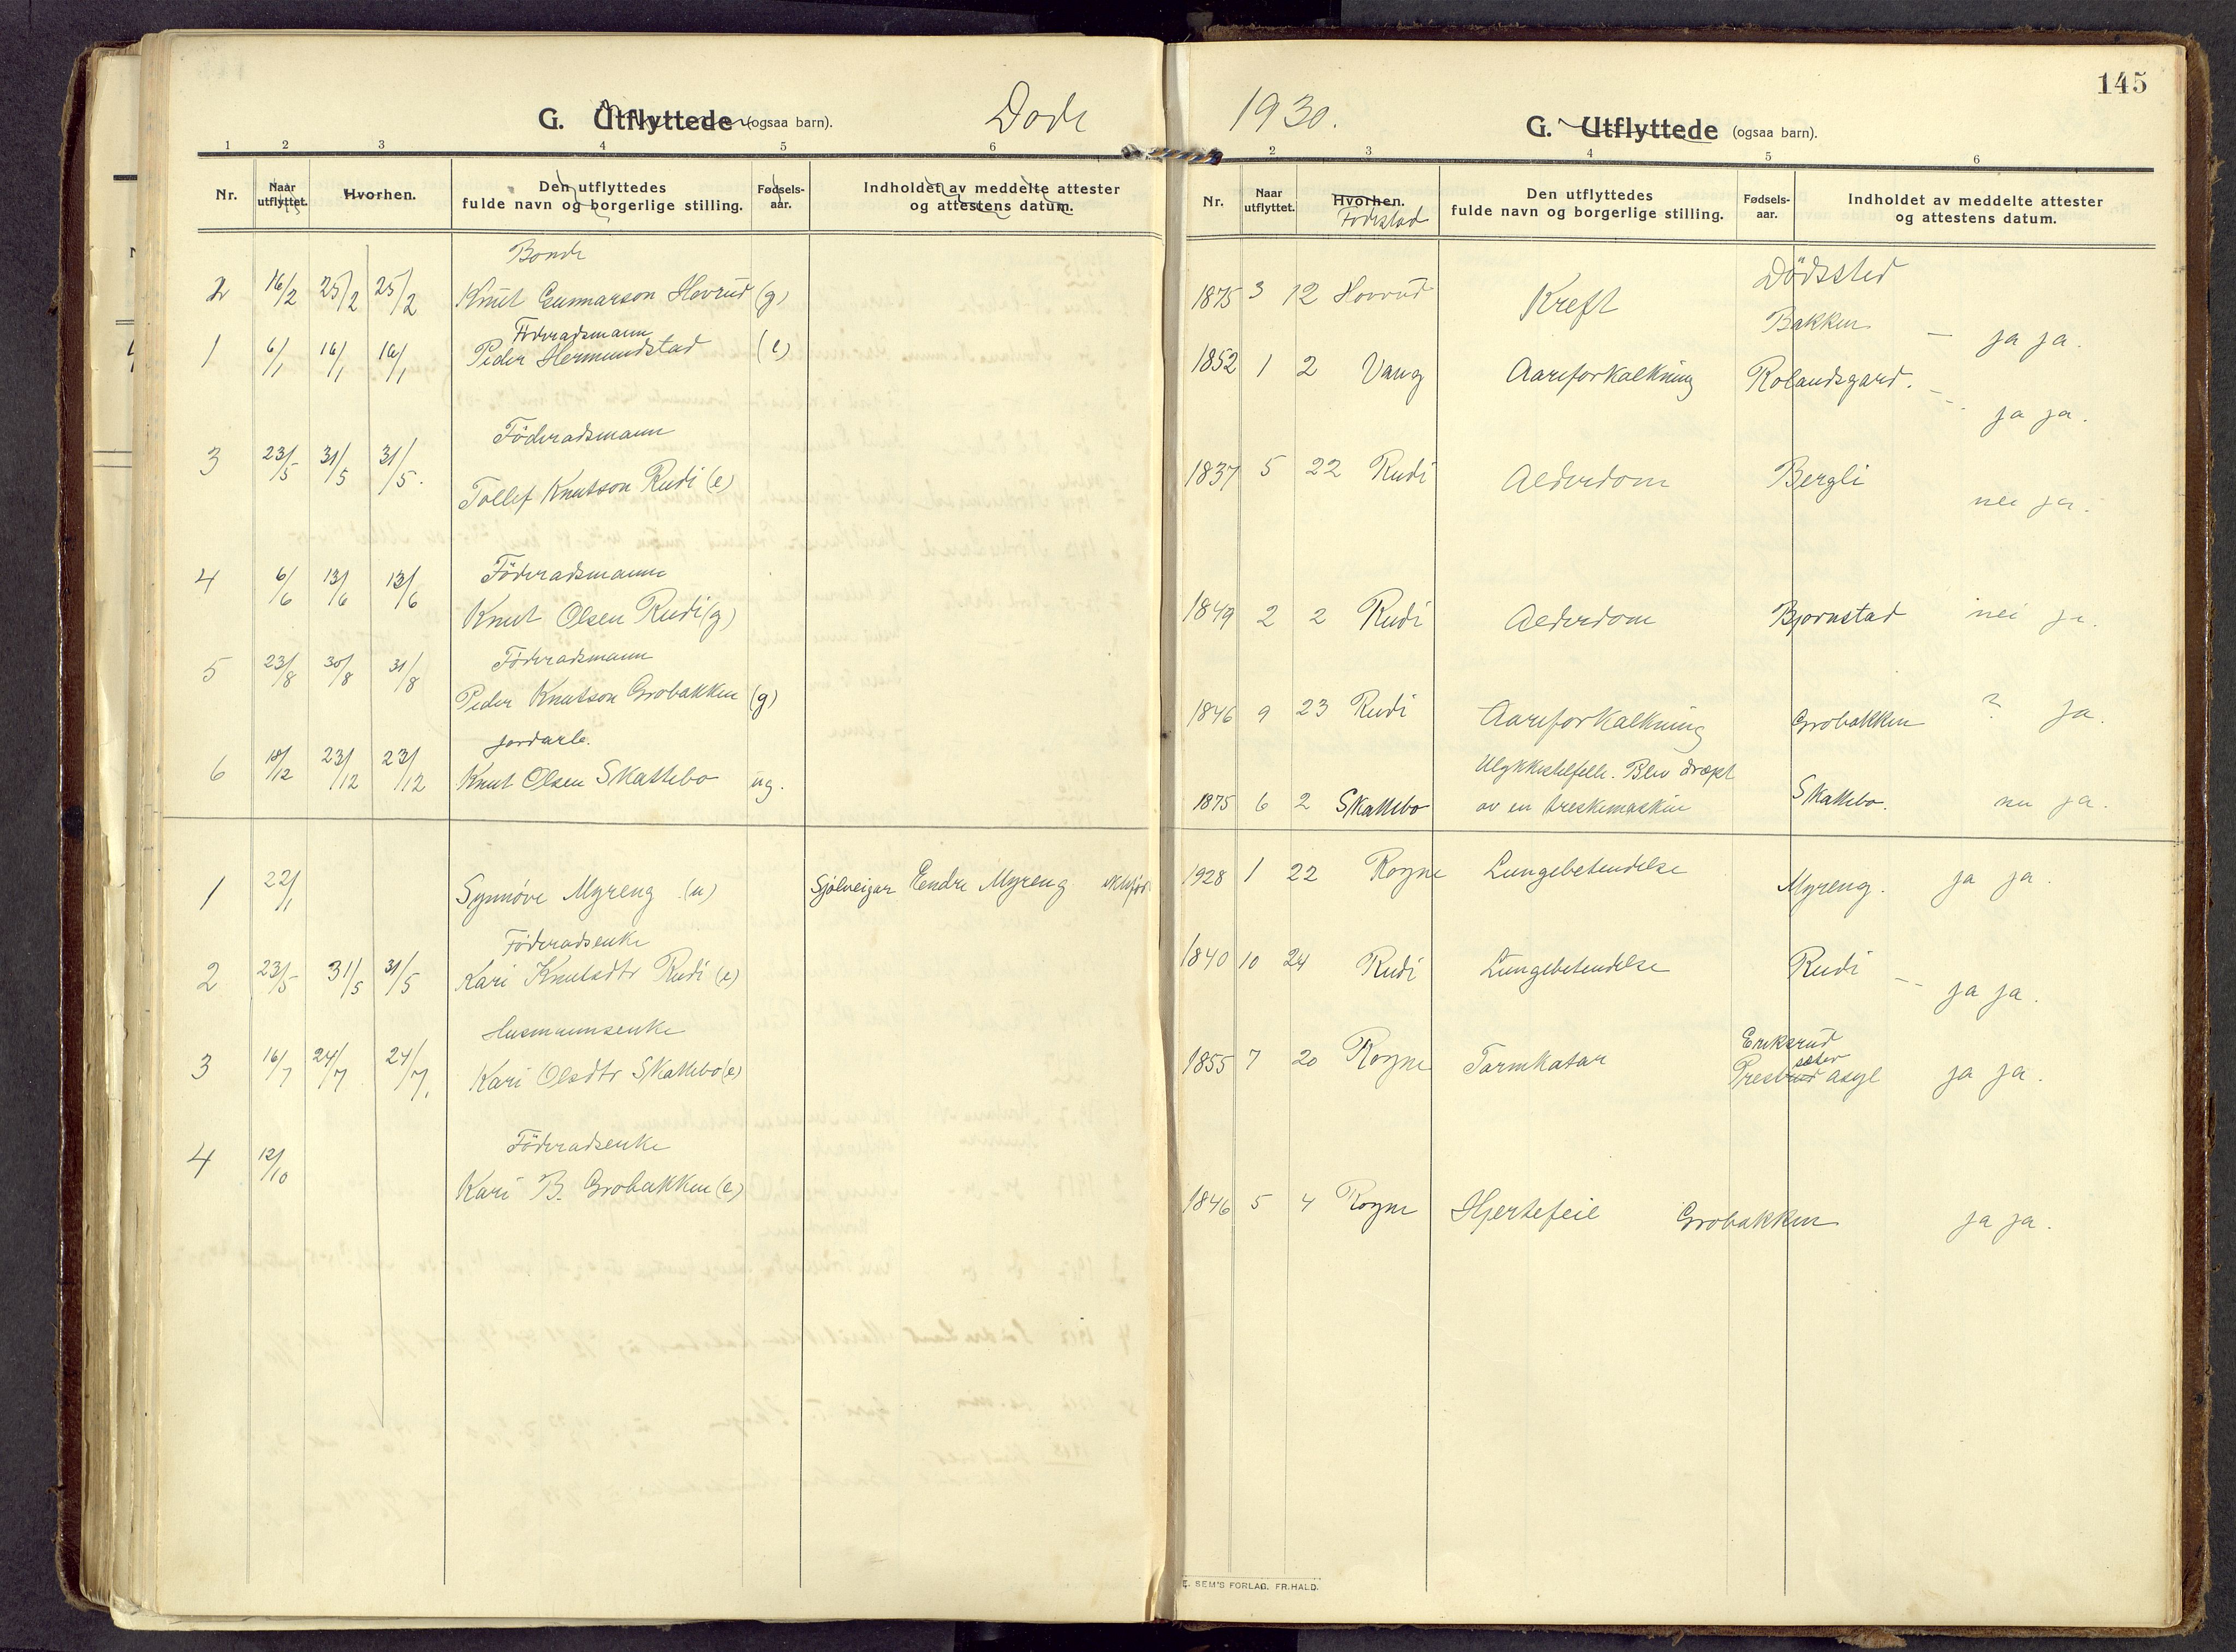 145
G. Utflyttede (ogsaa barn). Døde
1930.
G. Utflyttede (ogsaa barn).
1 2 3 4 5 6
2 3 4 5 6
Nr. Naar utflyttet. Hvorhen. Den utflyttedes fulde navn og borgerlige stilling. Fødsels-aar. Indholdet av meddelte attester og attestens datum.
Nr. Naar utflyttet. Hvorhen. Fødestad Den utflyttedes fulde navn og borgerlige stilling. Fødsels-aar. Indholdet av meddelte attester og attestens datum.
Bonde
2 16/2 25/2 25/2 Knut Gunnarson Hovrud (g)
Föderadsmann
1 6/1 16/1 16/1 Peder Hermundstad (e)
Föderadsmann
3 23/5 31/5 31/5. Tollef Knutson Rudi (e)
4 6/6 13/6 13/6 Föderadsmann
Knut Olsen Rudi (g)
5 23/8 30/8 31/8 Föderadsmann
Peder Knutson Grobakken (g)
Jordarb.
6 18/12 23/12 23/12 Knut Olsen Skattebo ug.
1 22/1 Synnöve Myreng (u) Sjölveigar Endre Myreng
Föderadsenke
2 23/5 31/5 31/5 Kari Knutsdtr Rudi (e)
Husmannsenke
3 16/7 24/7 24/7. Kari Olsdtr Skattebo (e)
Föderadsenke
4 12/10 Kari B. Grobakken (e)
Dödssted
1875 3 12 Hovrud Kreft Bakken – ja ja.
1852 1 2 Vang Aareforkalkning Rolandsgard. – ja ja.
1837 5 22 Rudi Alderdom Bergli nei ja.
1849 2 2 Rudi Alderdom Bjørnstad nei ja.
1846 9 23 Rudi Aareforkalkning Grobakken ? ja.
Ulykkestilfelle. Blev dræpt
1875 6 2 Skattebo av en treskemaskin Skattebo. nei ja.
1928 1 22 Rogne Lungebetendelse Myreng. ja ja.
1840 10 24 Rudi Lungebetendelse Rudi – ja ja.
Eriksrud
1855 7 20 Rogne Tarmkatar Prest rud sæter asyl ja ja.
1846 5 4 Rogne Hjertefeil Grobakken ja ja.
E. SEM'S FORLAG. FR.HALD.